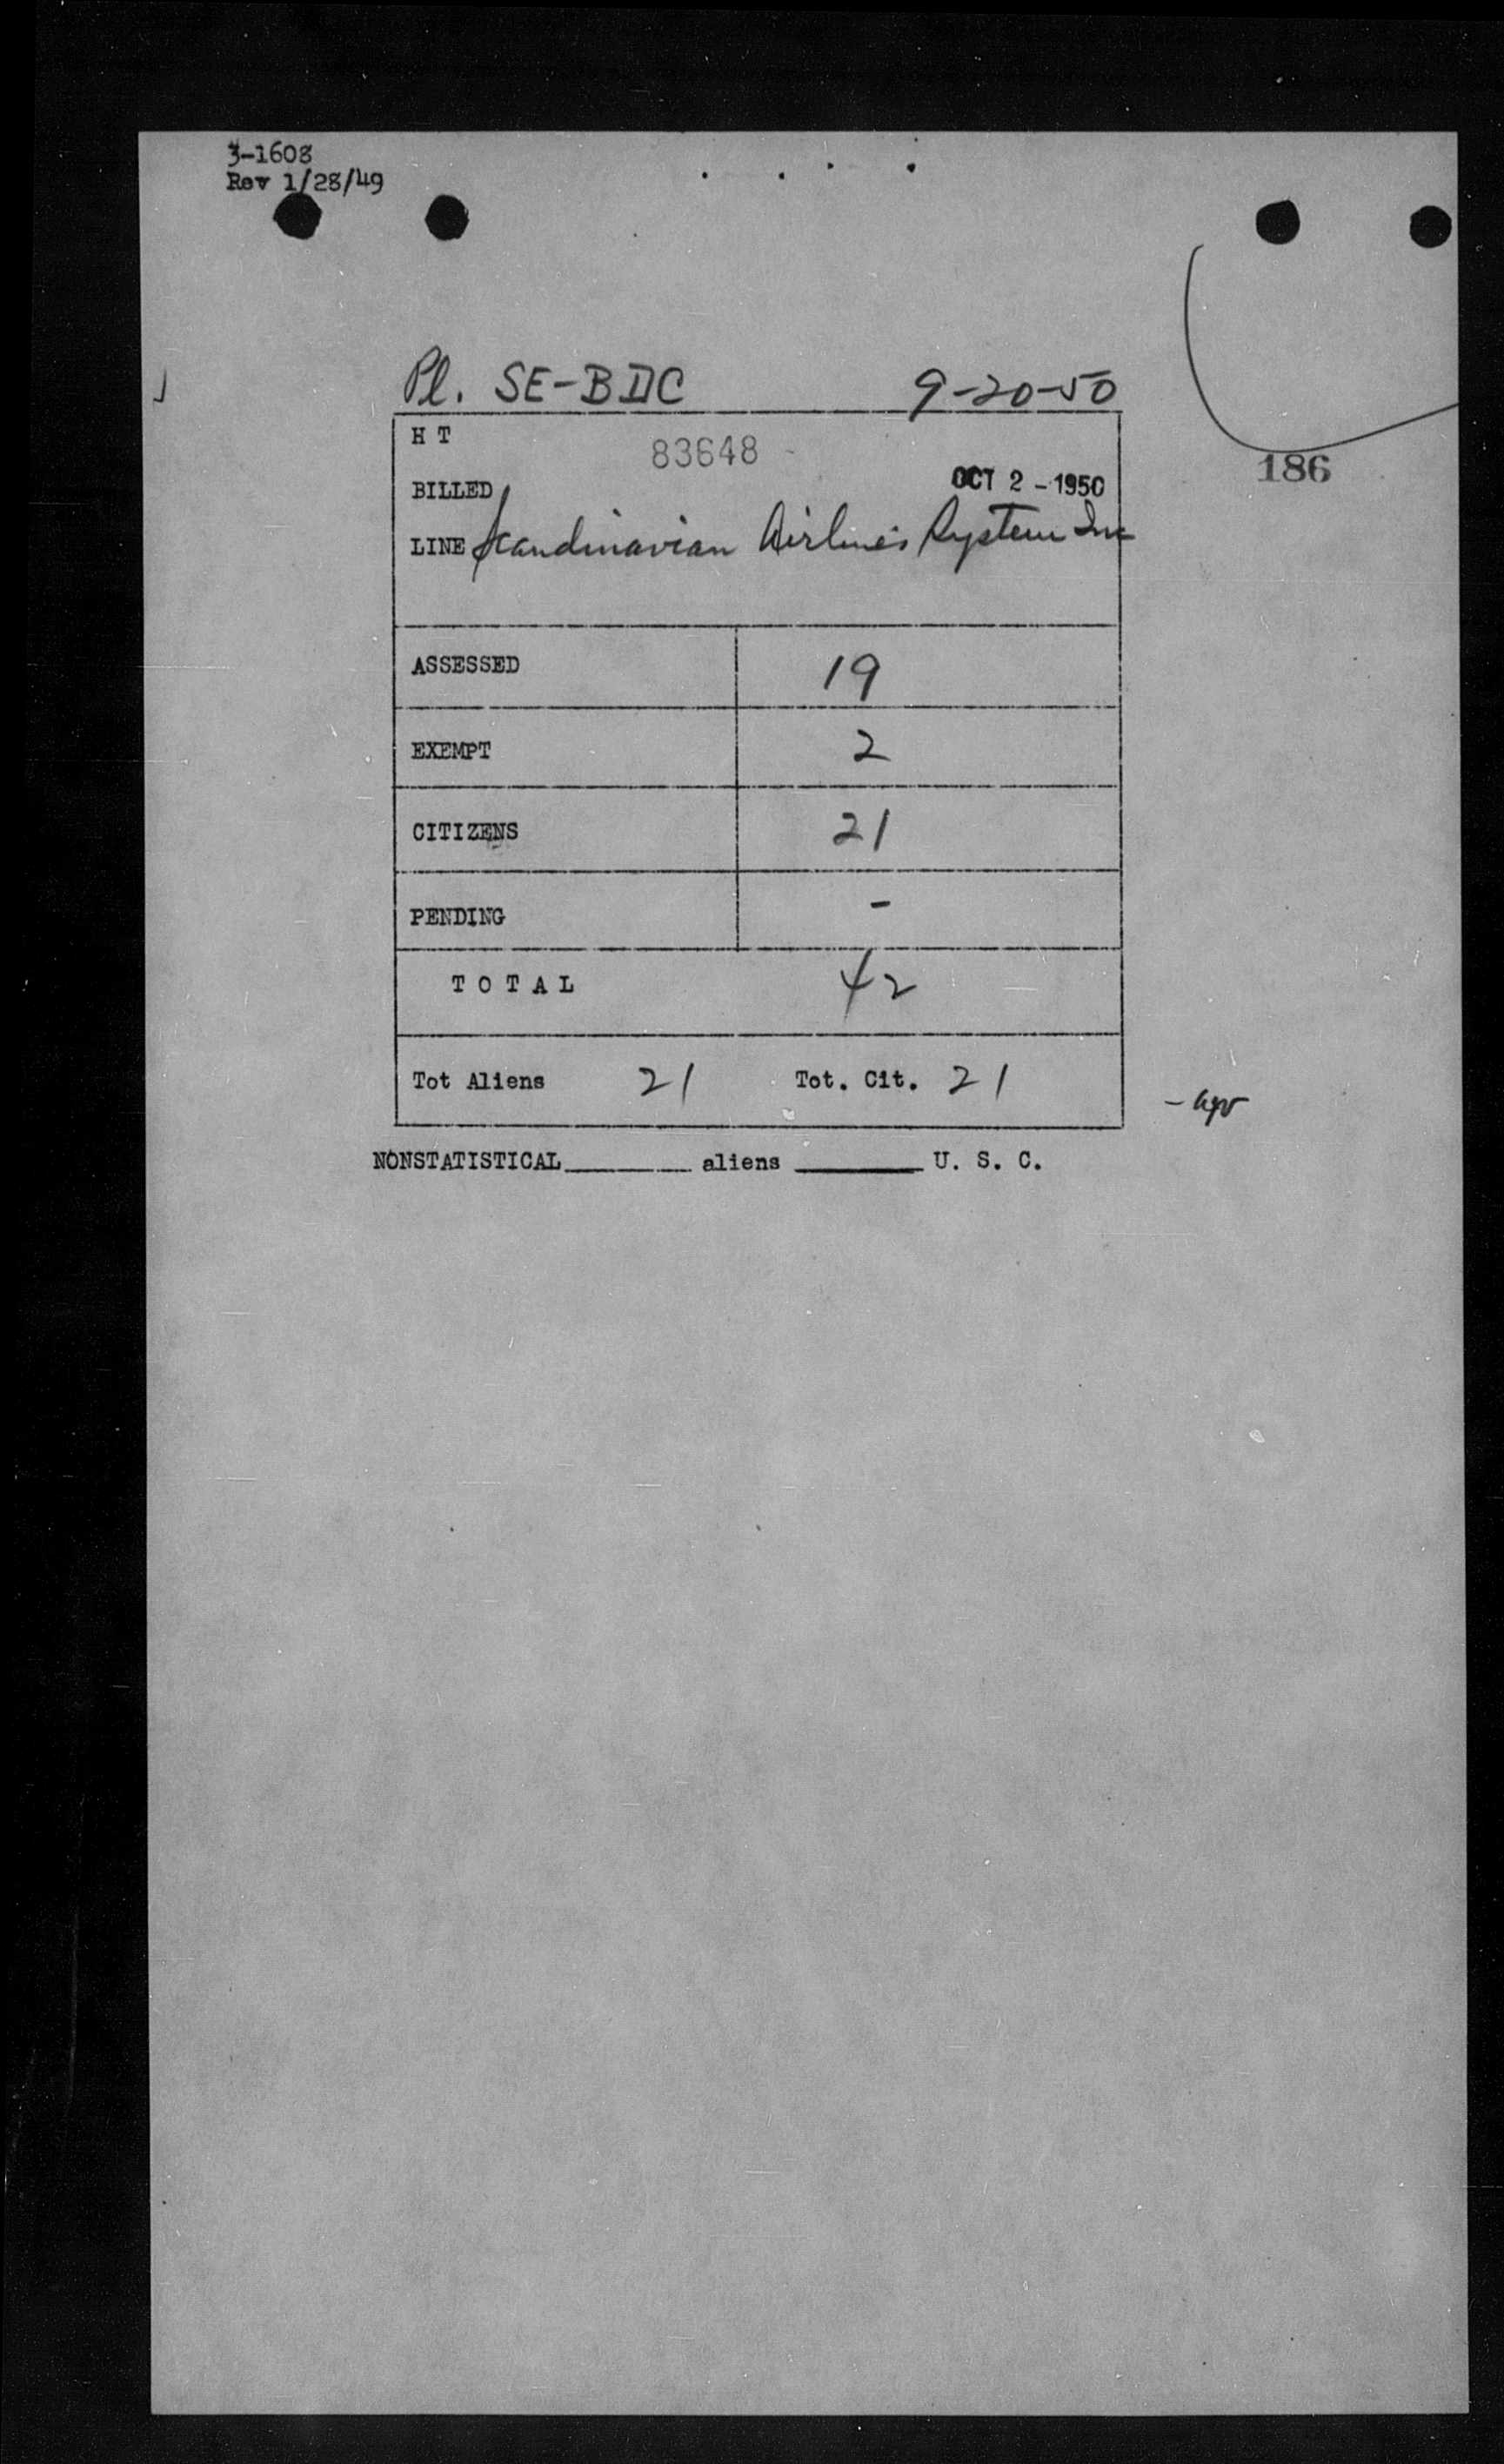 3-1608
Rev 1/28/49
Pl. SE-BDC 9-20-50
H T
83648
BILLED OCT 2 - 1950
LINE Scandinavian Airlines System Inc
186
ASSESSED 19
EXEMPT 2
CITIZENS 21
PENDING -
TOTAL 42
Tot Aliens 21 Tot. Cit. 21
NONSTATISTICAL______ aliens ______ U. S. C.